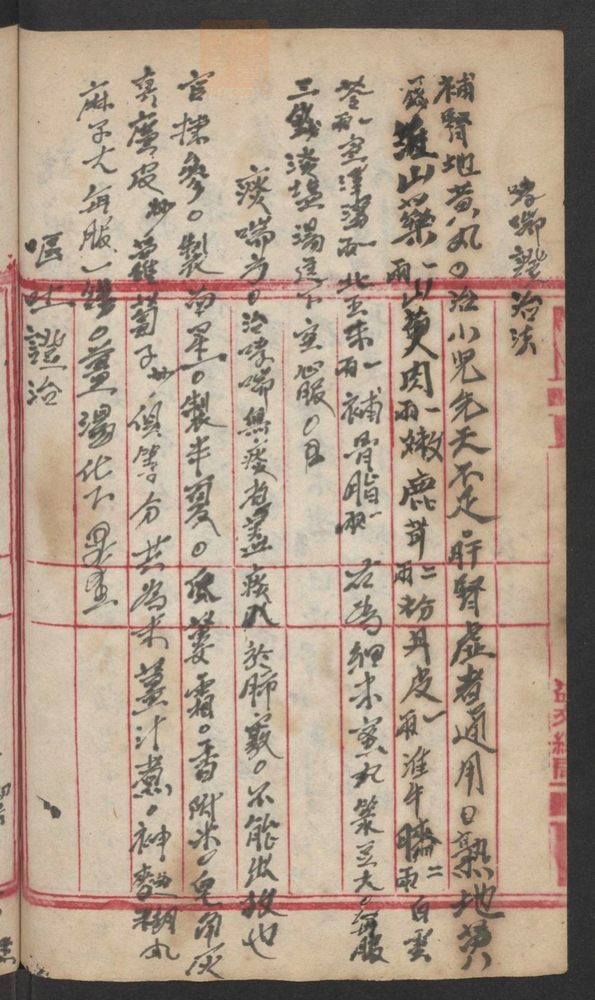 哮喘證治法
補腎地黃丸。治小兒先天不足肝腎虛者通用。熟地黃八
錢淮山藥一兩山萸肉一兩嫩鹿茸二兩粉丹皮一兩淮牛膝二兩白雲
苓一兩宣澤瀉一兩北五味一兩補骨脂一兩 右為細末蜜丸菉豆大。每服
三錢淡塩湯送下空心服。
痰喘方。治哮喘無痰者蓋痰入於肺竅。不能出故也
官揀參。製南星。製半夏。瓜蔞霜。香附米。皂角灰
真廣皮炒蘿蔔子炒俱等分共為末薑汁煮。神麯糊丸
麻子大每服一錢。薑湯化下
嘔吐證治